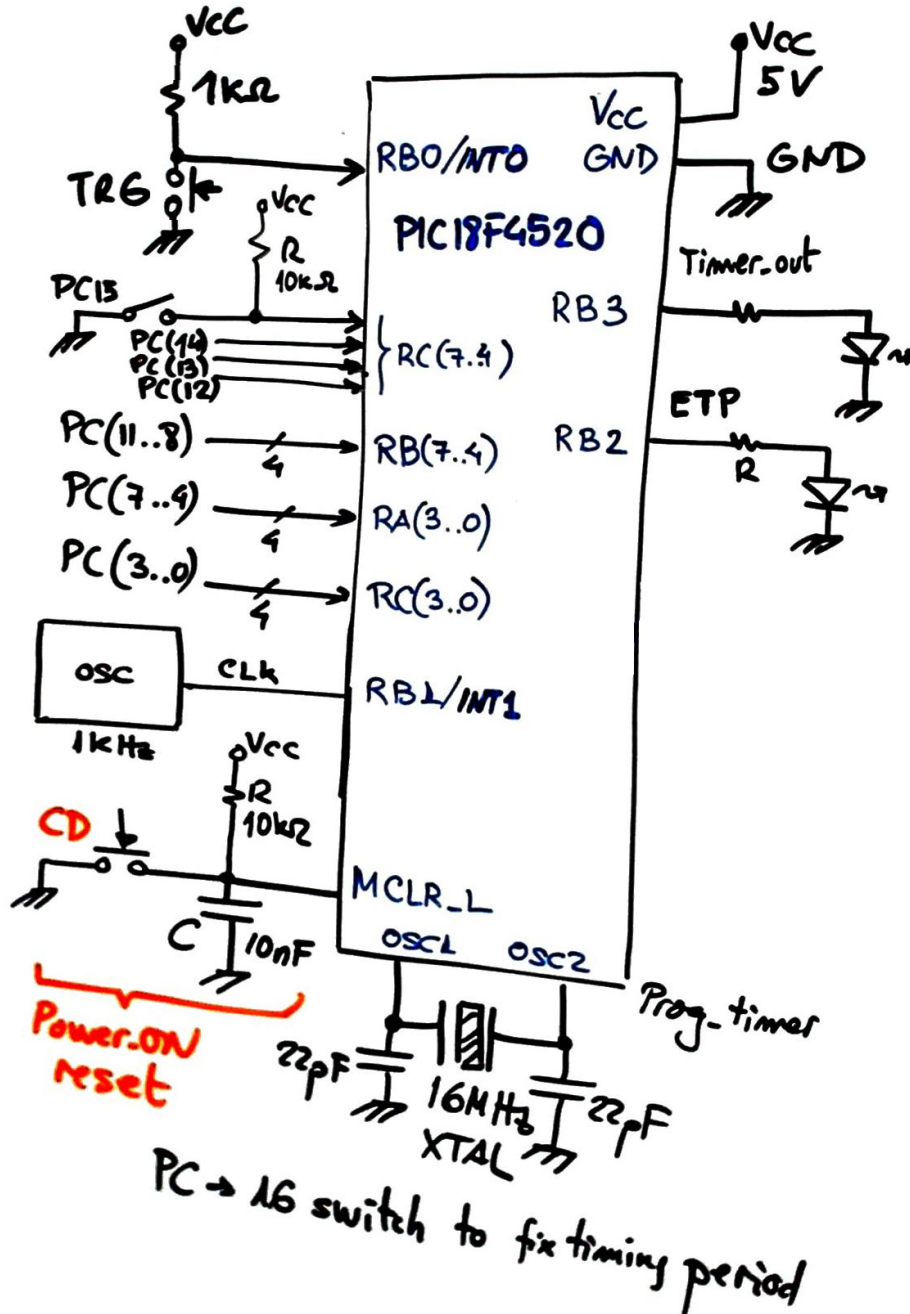 VCC
1kΩ
TRG
VCC
R
10kΩ
PC15
PC(14)
PC(13)
PC(12)
PC(11..8)
4
PC(7..4)
4
PC(3..0)
4
OSC
1kHz
CLK
VCC
R
10kΩ
CD
C
10nF
Power-ON
reset
VCC
5V
VCC
GND
GND
RB0/INT0
PIC18F4520
RC(7..4)
RB(7..4)
RA(3..0)
RC(3..0)
RB1/INT1
MCLR_L
OSC1
OSC2
RB3
Timer_out
RB2
ETP
R
Prog_timer
22pF
16MHz
XTAL
22pF
PC → 16 switch to fix timing period